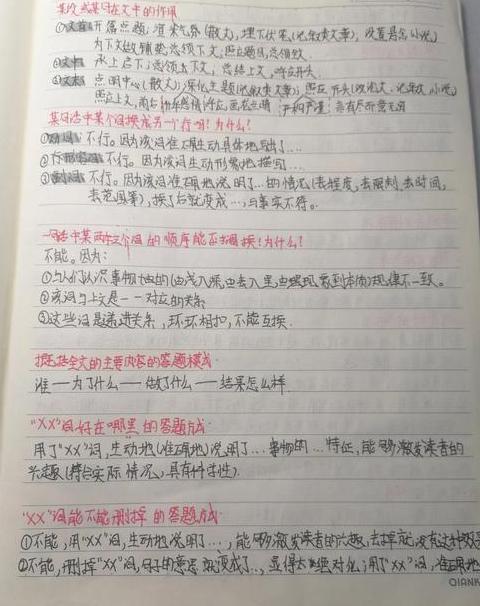 某段或某句在文中的作用
①文首:开篇点题,渲染气氛(散文),埋下伏笔(记叙类文章),设置悬念(小说)
为下文做铺垫,总领下文,照应题目,总领全文.
②文中:承上启下,总领下文,总结上文,呼应开头
③文末:点明中心(散文),深化主题(记叙类文章),照应开头(议论文、记叙文、小说)
照应上文,
某句话中某个词换成另一个行吗?为什么?
①动词:不行。因为该词准确生动具体地写出了…
②形容词:不行。因为该词生动形象地描写…
③副词:不行。因为该词准确地说明了…的情况(表程度,表限制,表时间,
表范围等),换了后就变成…,与事实不符。
一句话中某两三个词的顺序能否调换?为什么?
不能。因为:
①与人们认识事物的(由浅入深,由表入里,由现象到本质)规律不一致。
②该词与上文是一一对应的关系
③这些词是递进关系,环环相扣,不能互换.
概括全文的主要内容的答题模式.
谁——为了什么——做了什么——结果怎么样.
"XX"词好在哪里的答题方式.
用了"XX"词,生动地(准确地)说明了…事物的…特征,能够激发读者的
兴趣(符合实际情况,具有科学性).
"XX"词能不能删掉的答题方式.
①不能,用"XX"词,生动地说明了…,能够激发读者的兴趣,去掉就没有这种效果
②不能,删掉"XX"词,句子的意思就变成了…,显得太绝对化;用了"XX"词,准确地
QIANK